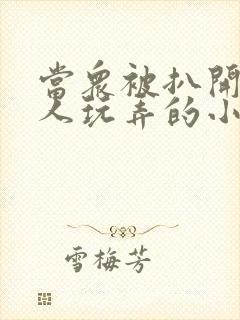 當衆被扒開
人玩弄的小
雪梅芳